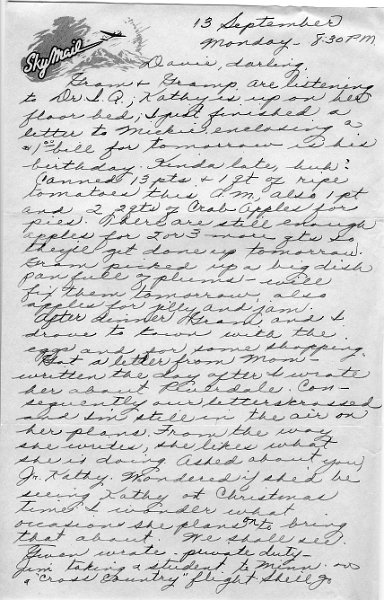 Sky Mail
13 September
Monday - 8:30 PM
Davie, darling,
Gram & Gramp are listening
to Dr. I.Q.; Kathy is up on her
floor bed; I just finished a
letter to Mickie enclosing a
$1.00 bill for tomorrow is his
birthday. Kinda late, huh?
Canned 13 pts & 1 qt of ripe
tomatoes this A.M. also 1 pt
and 2 qts of Crab Apples for
pies. There are still enough
apples for 2 or 3 more qts so
they'll get done up tomorrow.
Gram picked up a big dish
pan full of plums - will
fix them tomorrow, also
apples for jelly and jam.
After dinner Gram and I
drove to town with the
eggs and for some shopping.
Got a letter from Mom -
written the day after I wrote
her about Riverdale. Con-
sequently our letters crossed
and I'm still in the air on
her plans. From the way
she writes, she likes what
she is doing. Asked about you,
Jr. Kathy. Wondered if she'd be
seeing Kathy at Christmas
time & I wonder what
occasions she plans on to bring
that about. We shall see.
wrote - private duty -
Jim taking a student to Minn. on
a "cross country" flight. She'll go